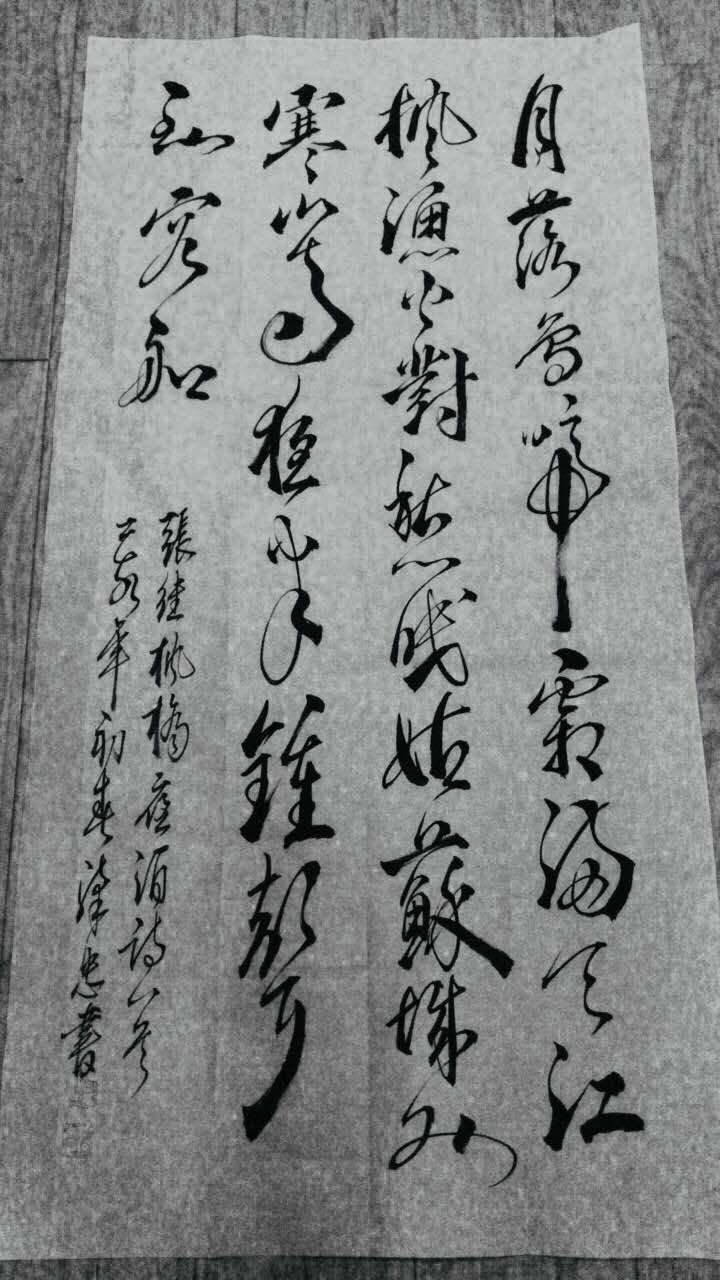 月落烏啼霜滿天江
楓漁火對愁眠姑蘇城外
寒山寺夜半鍾聲
到客船
張继楓橋夜泊詩一首
年初春忠書